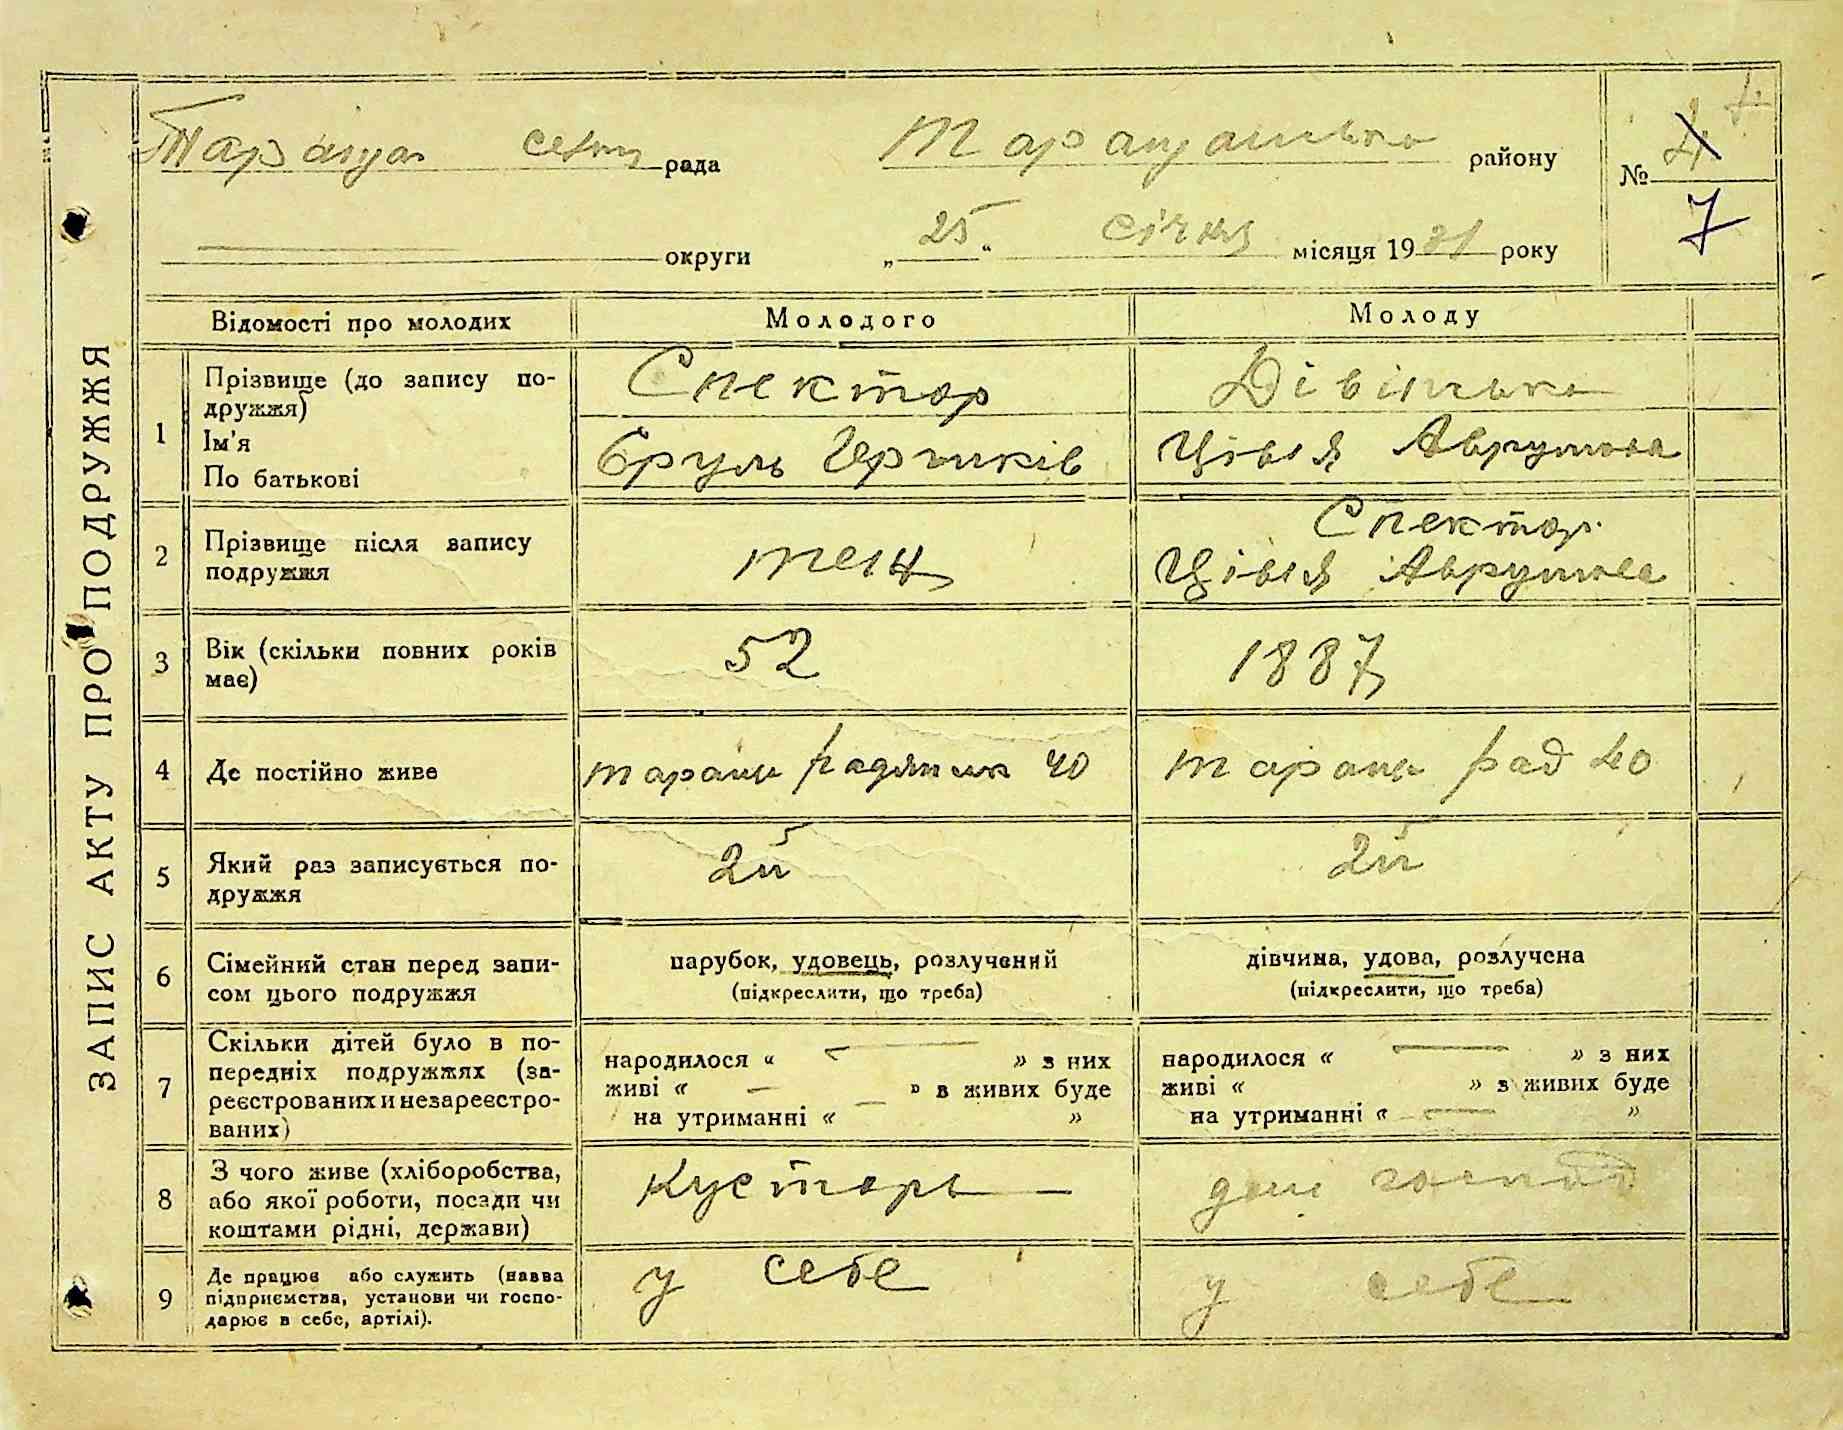 ЗАПИС АКТУ ПРО ПОДРУЖЖЯ
рада
району
№ 4
7
округи
„ 25 “ січня місяця 1931 року
Відомості про молодих
Молодого
Молоду
1
Прізвище (до запису по-
дружжя)
Ім'я
По батькові
Спектор
Єруль Гершків
Дівінська
Цівія Аврумова
2
Прізвище після запису
подружжя
теж
Спектор
Цівія Аврумова
3
Вік (скільки повних років
має)
52
1887
4
Де постійно живе
таращ 40
таращ рад 40
5
Який раз записується по-
дружжя
2й
2й
6
Сімейний стан перед запи-
сом цього подружжя
парубок, удовець, розлучений
(підкреслити, що треба)
дівчина, удова, розлучена
(підкреслити, що треба)
7
Скільки дітей було в по-
передніх подружжях (за-
реєстрованих и незареєстро-
ваних)
народилося “ — » з них
живі « — » в живих буде
на утриманні « — »
народилося « — » з них
живі « » з живих буде
на утриманні « — »
8
З чого живе (хліборобства,
або якої роботи, посади чи
коштами рідні, держави)
кустарь —
дом господ
9
Де працює або служить (навва
підприємства, установи чи госпо-
дарює в себе, артілі).
у себе
у себе